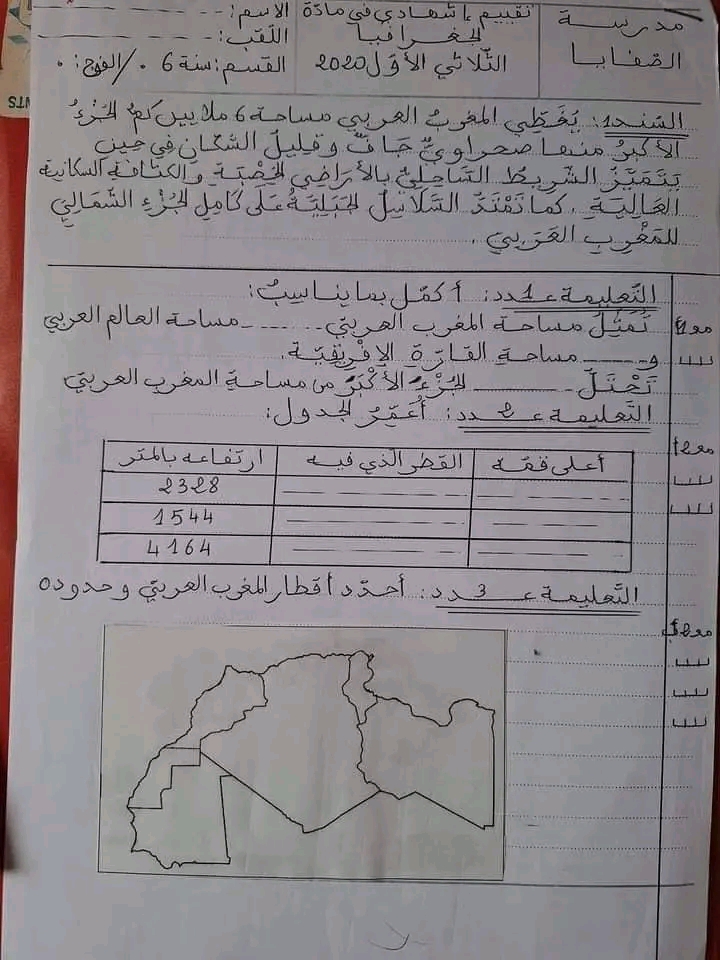 مدرسة
الصفايا
تقييم إشهادي في مادة
الجغرافيا
الثّلاثي الأوّل 2020
الاسم:
اللّقب:
القسم: سنة 6 /الفوج:
السّند 1: يُغَطِّي المغربُ العربي مساحة 6 ملايين كم² الجزءُ
الأكبرُ منها صحراويٌّ جَافٌّ وقليلُ السُّكّانِ في حينِ
يَتَمَيَّزُ الشّريطُ السّاحِليُّ بالأراضِي الخِصْبَةِ والكثافةِ السكانية
العَالِيَةِ. كما تَمْتَدُّ السّلَاسِلُ الجَبَلِيَّةُ عَلَى كَامِلِ الجُزْءِ الشّمَالِيِّ
للمَغْرِبِ العَرَبِيِّ.
التّعليمة عـ1ـدد: أكمّل بما يناسبُ:
تُمَثِّلُ مساحة المغرب العربيّ ...... مساحة العالم العربي
و ...... مساحةِ القارّةِ الإفْرِيقيّة.
تَحْتَلُّ ...... الجُزْءَ الأكْبَرَ من مساحةِ المغرب العربيّ
التّعليمة عـ2ـدد: أُعَمِّرُ الجدول:
أعلى قمّة القطر الذي فيه ارتفاعه بالمتر
2328
1544
4164
التّعليمة عـ3ـدد: أحدّد أقطار المغرب العربيّ وحدوده
مع1أ
مع2أ